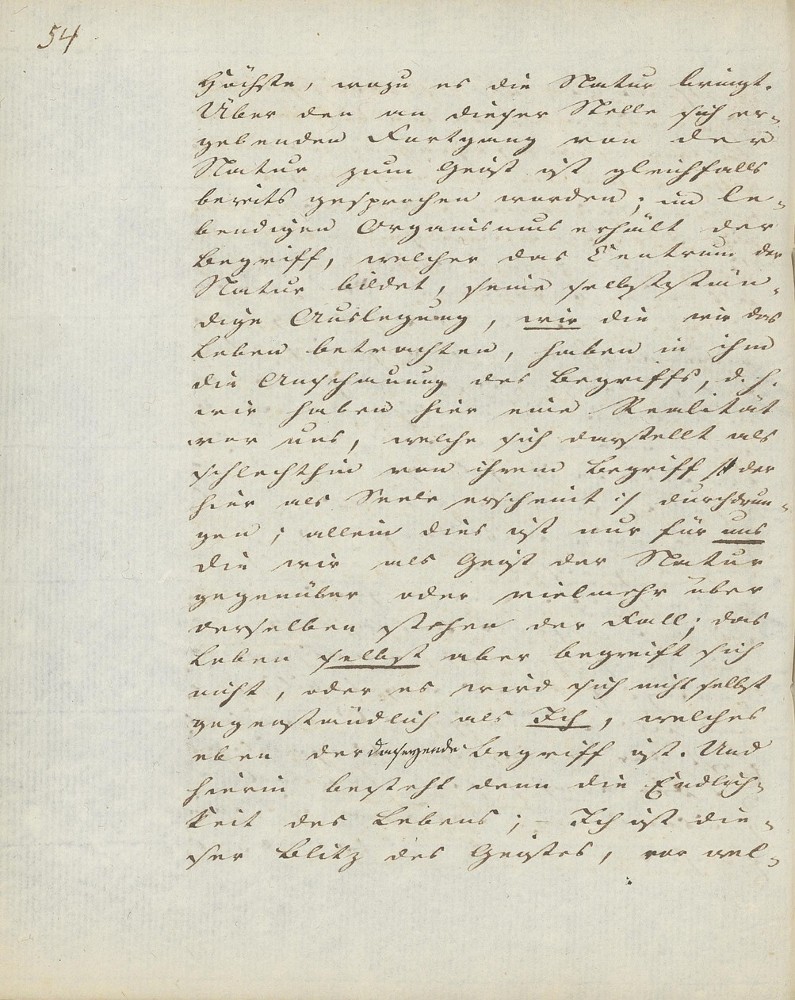 54
Höchste, wozu es die Natur bringt.
Über den an dieser Stelle sich er-
gebenden Fortgang von der
Natur zum Geist ist gleichfalls
bereits gesprochen worden; im le-
bendigen Organismus erhält der
Begriff, welcher das Centrum der
Natur bildet, seine selbstständ-
dige Auslegung, wir die wir das
Leben betrachten, haben in ihm
die Anschauung des Begriffs, d. h.
wir haben hier eine Realität
vor uns, welche sich darstellt als
schlechthin von ihrem Begriff /: der
hier als Seele erscheint :/ durchdrun-
gen; allein dies ist nur für uns
die wir als Geist der Natur
gegenüber oder vielmehr über
derselben stehen der Fall; das
Leben selbst aber begreift sich
nicht, oder es wird sich nicht selbst
gegenständlich als Ich, welches
eben der daseyende Begriff ist. Und
hierin besteht denn die Endlich-
keit des Lebens; – Ich ist die-
ser Blitz des Geistes, vor wel-